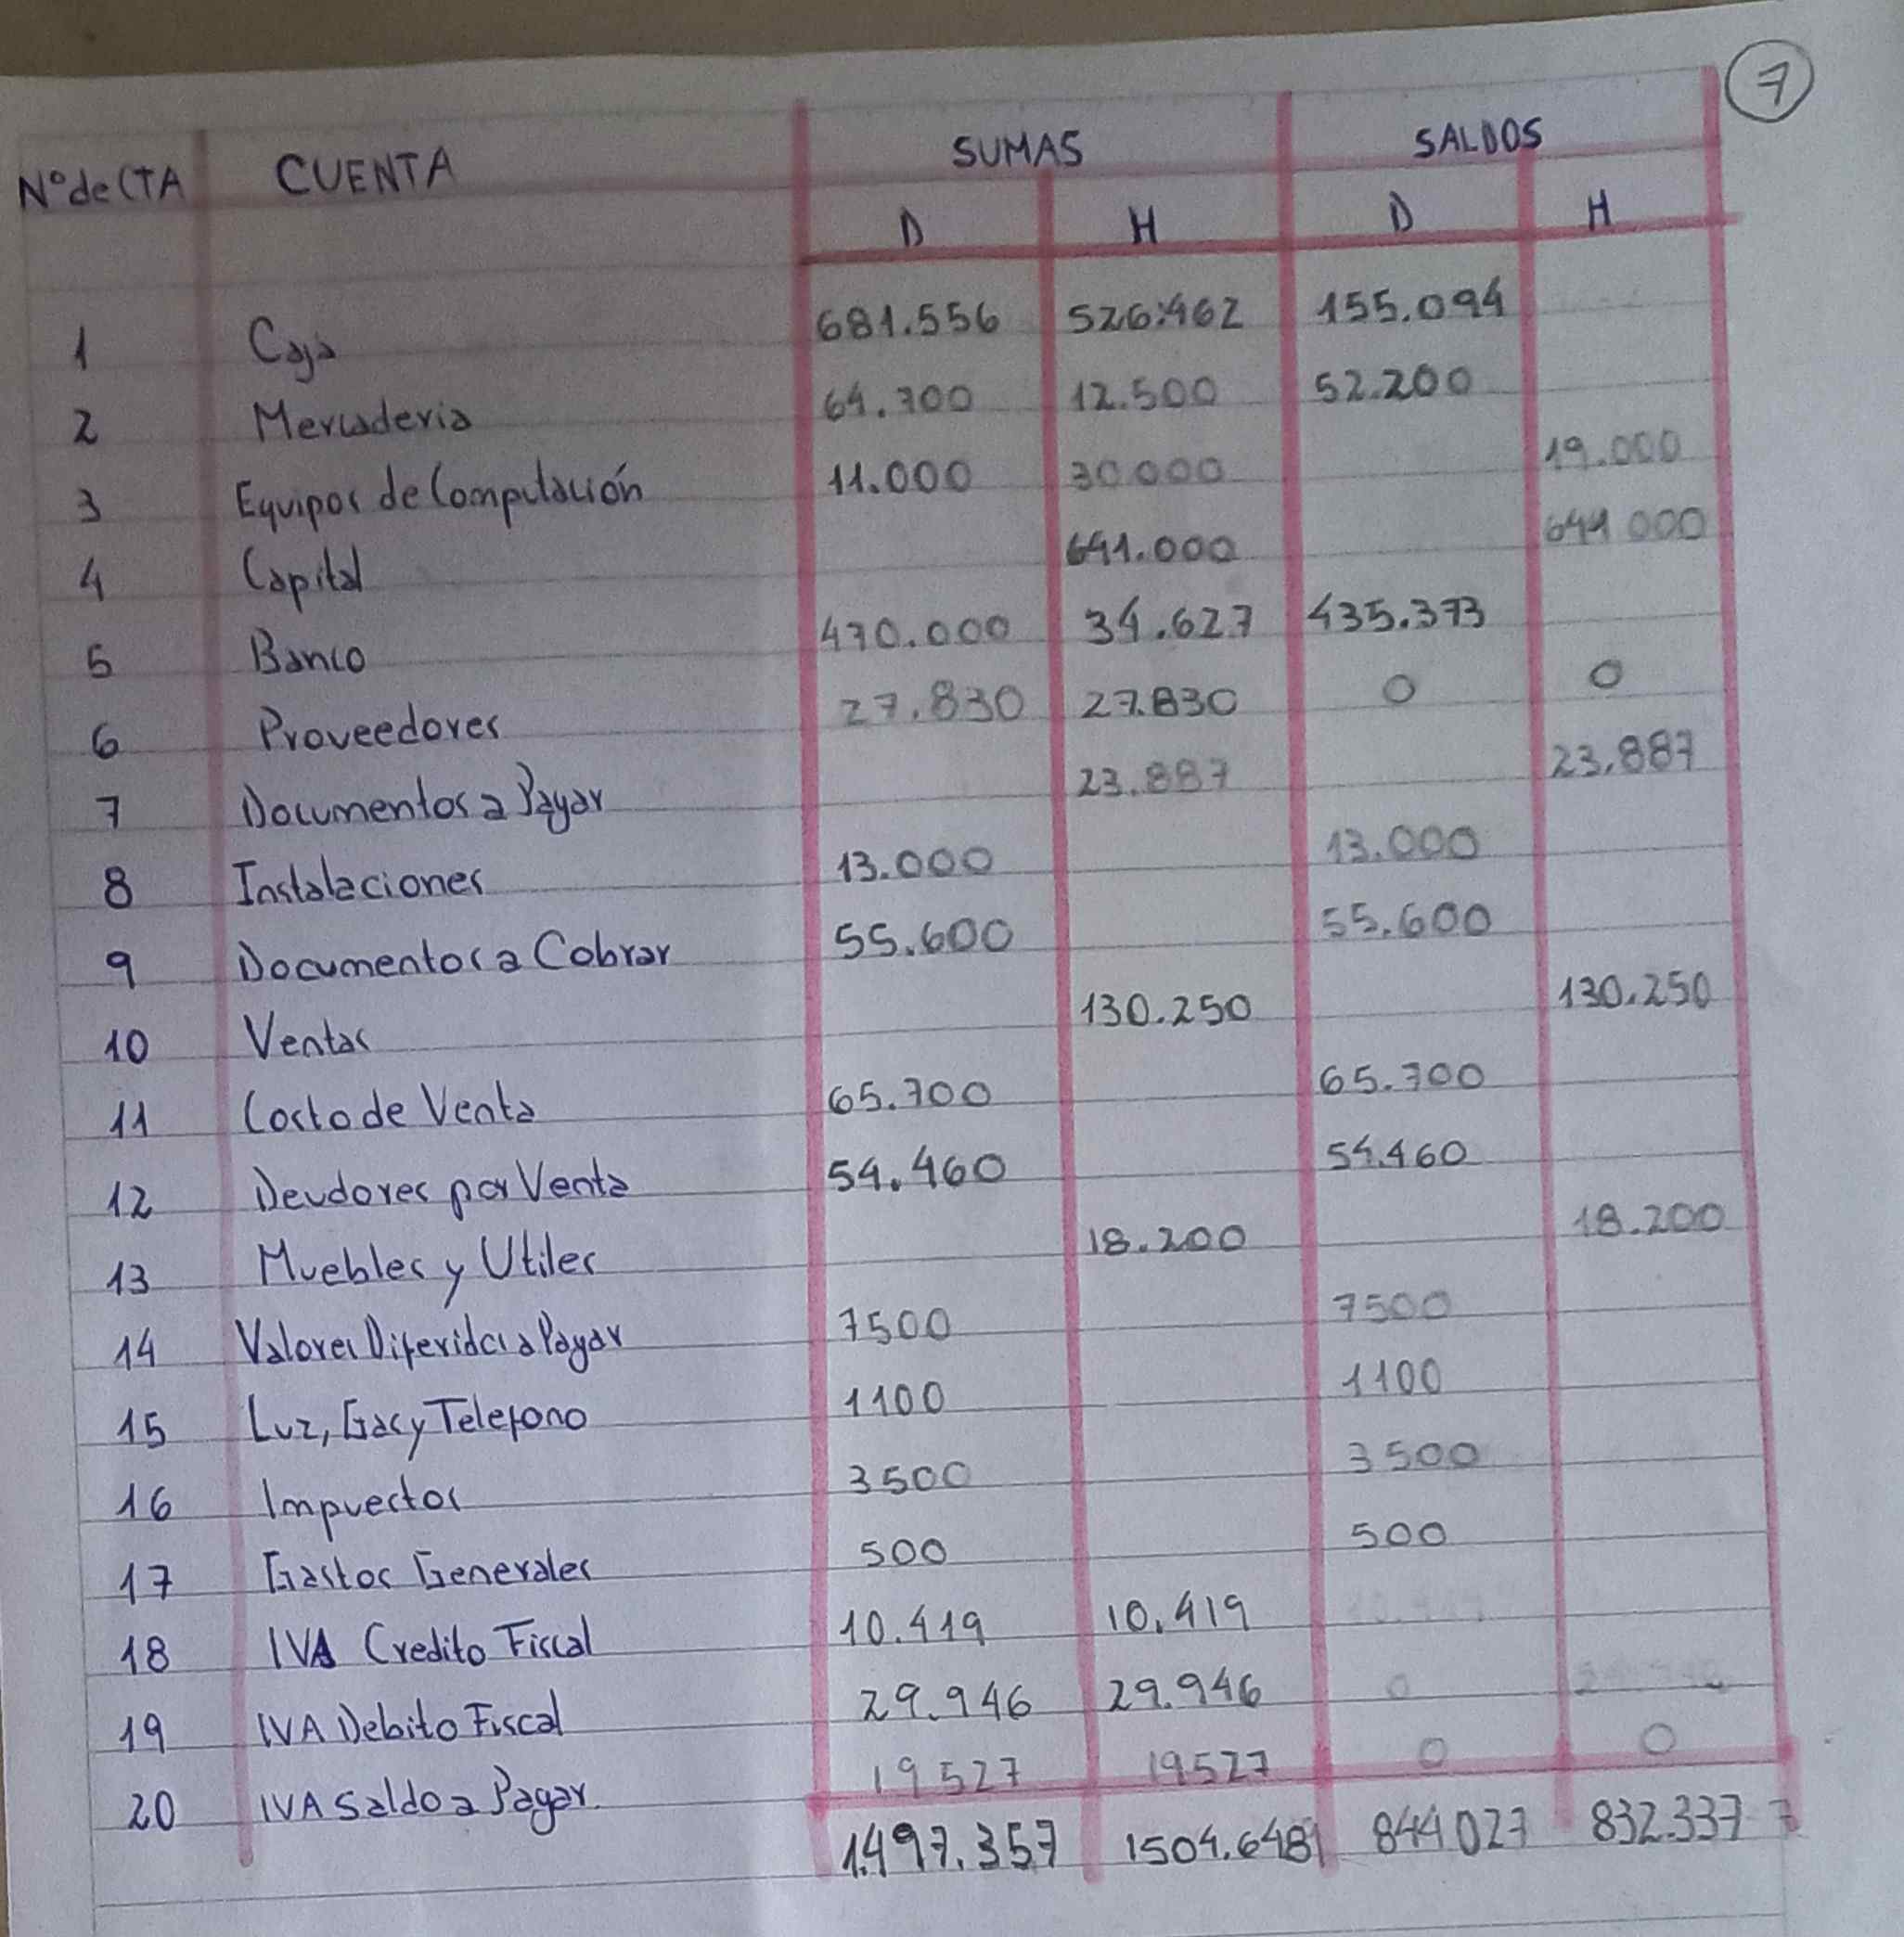 7
N° de CTA CUENTA SUMAS SALDOS
D H D H
1 Caja 681.556 526.462 155.094
2 Mercaderia 64.700 12.500 52.200
3 Equipos de Computación 11.000 30000 19.000
4 Capital 641.000 641000
5 Banco 470.000 34.627 435.373
6 Proveedores 27.830 27.830 0 0
7 Documentos a Pagar 23.887 23.887
8 Instalaciones 13.000 13.000
9 Documentos a Cobrar 55.600 55.600
10 Ventas 130.250 130.250
11 Costo de Venta 65.700 65.700
12 Deudores por Venta 54.460 54.460
13 Muebles y Utiles 18.200 18.200
14 Valores Diferidos a Pagar 7500 7500
15 Luz, Gas y Telefono 1100 1100
16 Impuestos 3500 3500
17 Gastos Generales 500 500
18 IVA Credito Fiscal 10.419 10.419
19 IVA Debito Fiscal 29.946 29.946 0
20 IVA Saldo a Pagar. 19527 19527 0 0
1.497.357 1504.648 844027 832.337 7